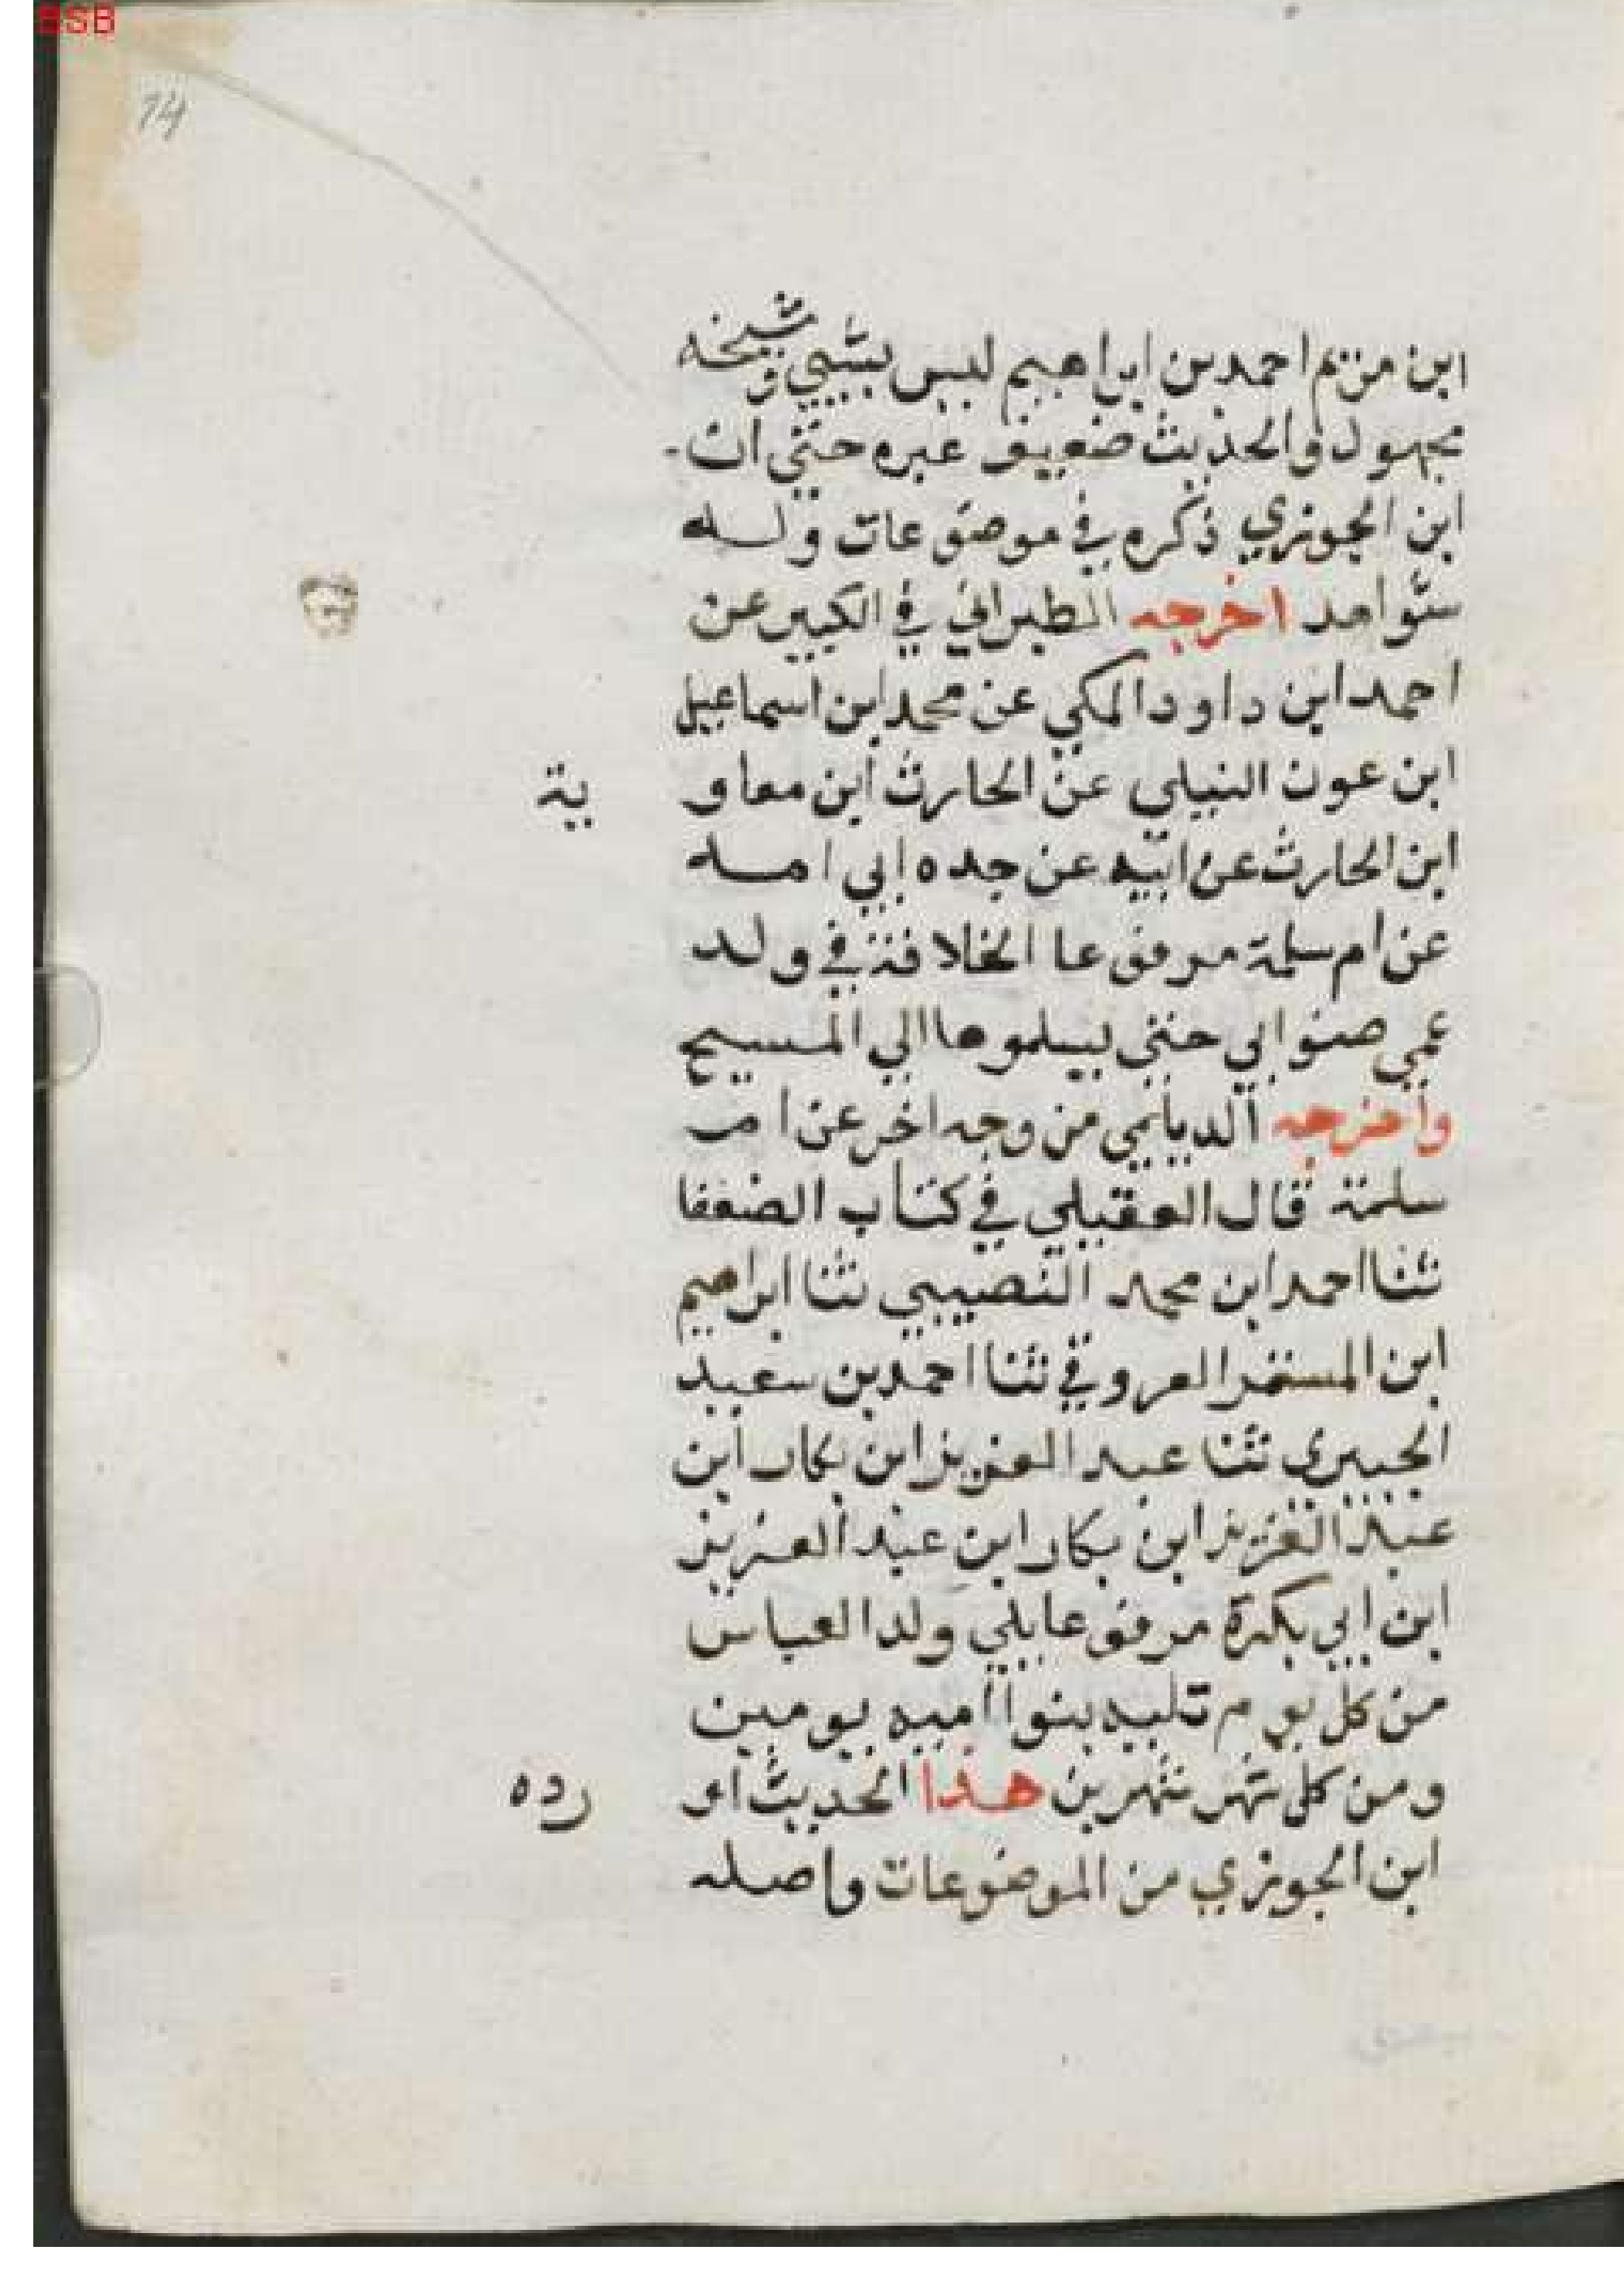 BSB
14
ابن مزيم احمد بن ابراهيم ليس بشيي وشيخه
مجهول والحديث ضعيف غيره حتي ان
ابن الجوزي ذكره في موضوعات وله
شواهد اخرجه الطبراني في الكبير عن
احمد ابن داود المكي عن محمد ابن اسماعيل
ابن عون النيلي عن الحارث ابن معاو ية
ابن الحارث عن ابيه عن جده ابي امه
عن ام سلمة مرفوعا الخلافة في ولد
عمي صنوابي حتي يسلموها الي المسيح
واخرجه الديلمي من وجه اخر عن ام
سلمة قال العقيلي في كتاب الضعفا
ثنا احمد ابن محمد النصيبي ثنا ابراهيم
ابن المستمر العروقي ثنا احمد بن سعيد
الجبيري ثنا عبد العزيز ابن بكار ابن
عبد العزيز ابن بكار ابن عبد العزيز
ابن ابي بكرة مرفوعا يلي ولد العباس
من كل يوم تليه بنوا اميه يومين
ومن كل شهر شهرين هذا الحديث او رده
ابن الجوزي من الموضوعات واصله